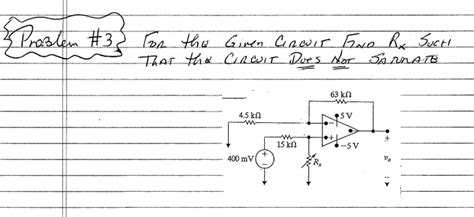 Problem #3 For the Given Circuit Find Rx Such
That the Circuit Does Not Saturate
63 kΩ
4.5 kΩ
5 V
15 kΩ
-5 V
400 mV
Rx
vo